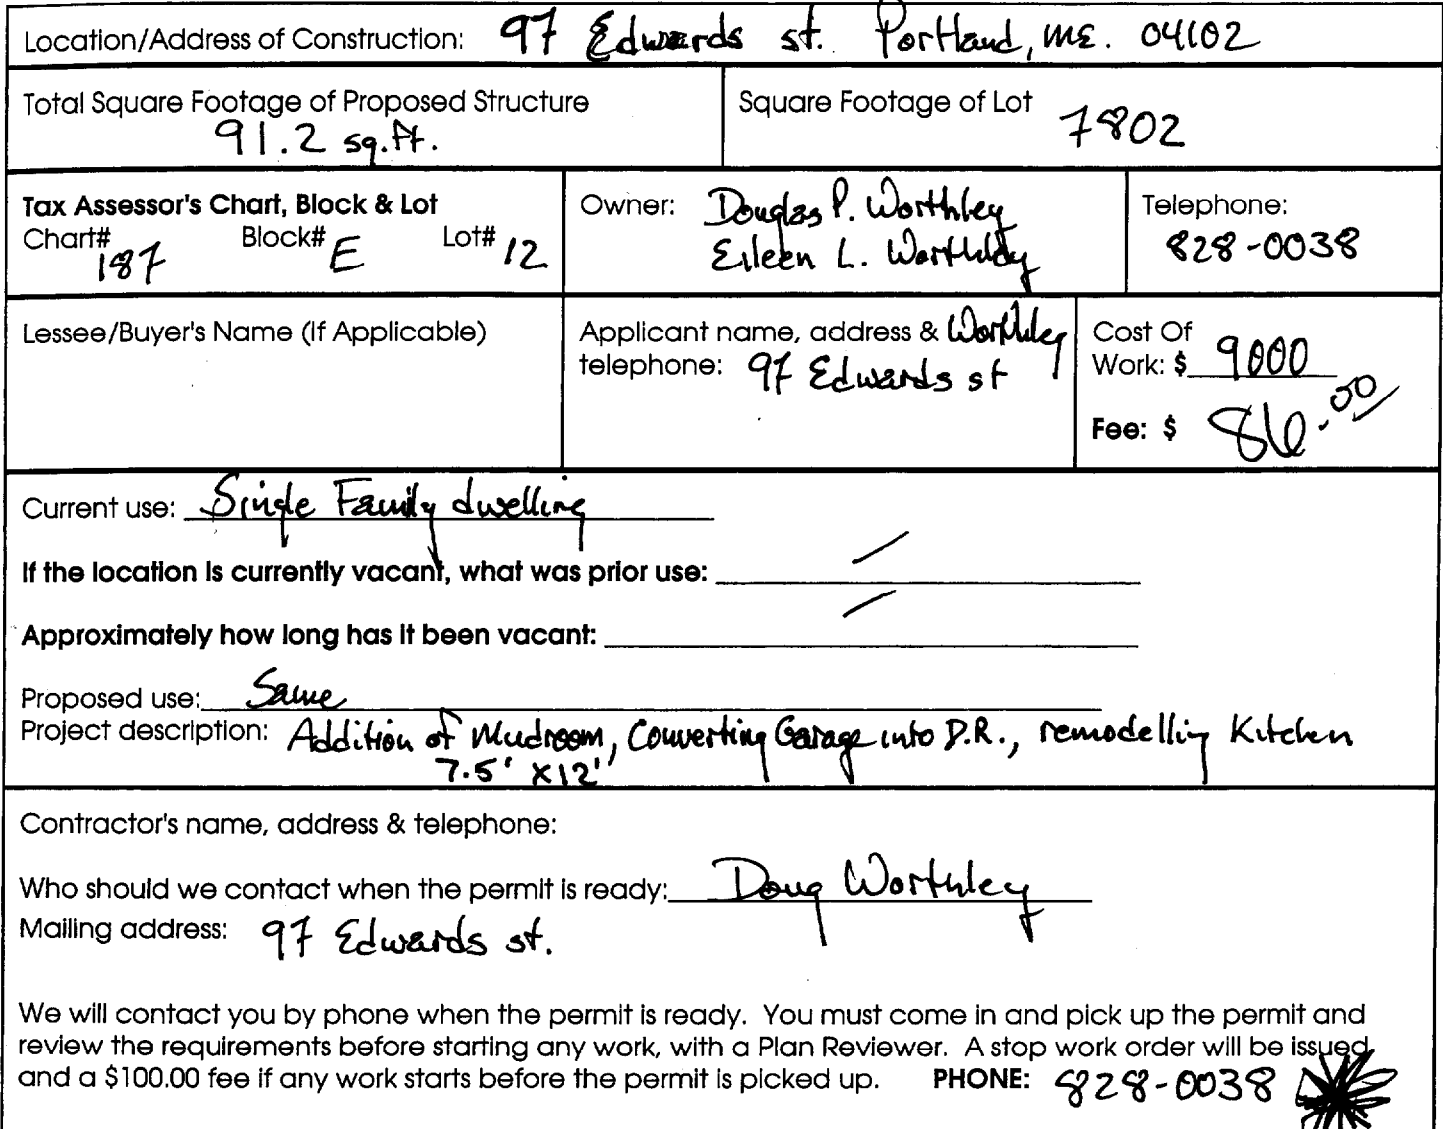 Location/Address of Construction: 97 Edwards st. Portland, ME. 04102
Total Square Footage of Proposed Structure
91.2 sq.ft.
Square Footage of Lot 7802
Tax Assessor's Chart, Block & Lot
Chart# 187 Block# E Lot# 12
Owner: Douglas P. Worthley
Eileen L. Worthley
Telephone:
828-0038
Lessee/Buyer's Name (If Applicable)
Applicant name, address & Worthley
telephone: 97 Edwards st
Cost Of
Work: $ 9000
Fee: $ 86.00
Current use: Single Family dwelling
If the location is currently vacant, what was prior use: —
Approximately how long has it been vacant: —
Proposed use: Same
Project description: Addition of Mudroom, Converting Garage into D.R., remodelling Kitchen
7.5' x12'
Contractor's name, address & telephone:
Who should we contact when the permit is ready: Doug Worthley
Mailing address: 97 Edwards st.
We will contact you by phone when the permit is ready. You must come in and pick up the permit and
review the requirements before starting any work, with a Plan Reviewer. A stop work order will be issued
and a $100.00 fee if any work starts before the permit is picked up. PHONE: 828-0038